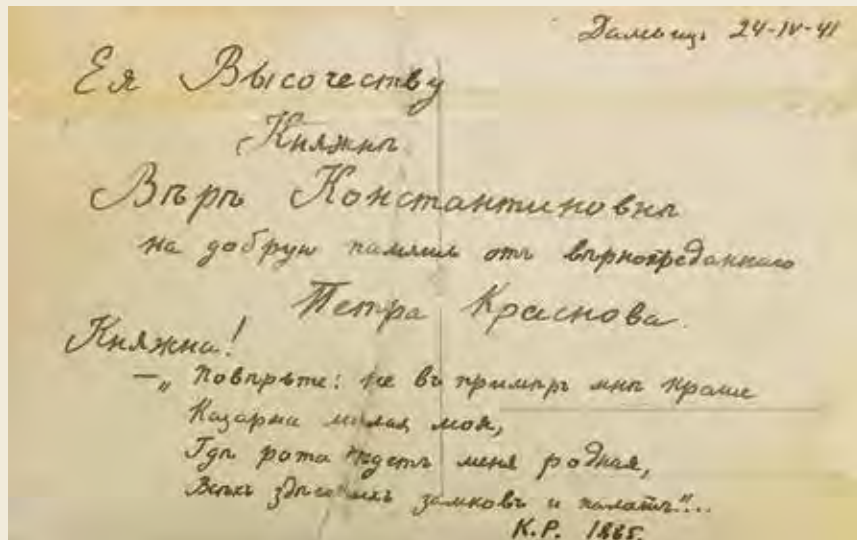 24-IV-41
Ея Высочеству
Княжнѣ
Вѣрѣ Константиновнѣ
на добрую память отъ вѣрнопреданнаго
Петра Краснова.
Княжна!
—„ Повѣрьте: не въ примѣръ мнѣ краше
Казарма милая моя,
Гдѣ рота ждетъ меня родная,
Всѣхъ здѣшнихъ замковъ и палатъ"...
К.Р. 1885.